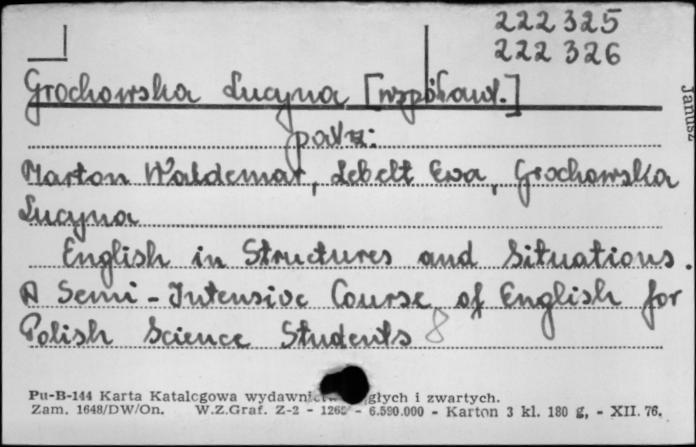 222 325
222 326
Grochowska Lucyna [współaut.]
patrz:
Marton Waldemar, Lebelt Ewa, Grochowska
Lucyna
English in Structures and Situations.
A Semi-Intensive Course of English for
Polish Science Students 8
Janusz
Pu-B-144 Karta Katalogowa wydawnictw ciągłych i zwartych.
Zam. 1648/DW/On. W.Z.Graf. Z-2 - 1265 - 6.590.000 - Karton 3 kl. 180 g, - XII. 76.